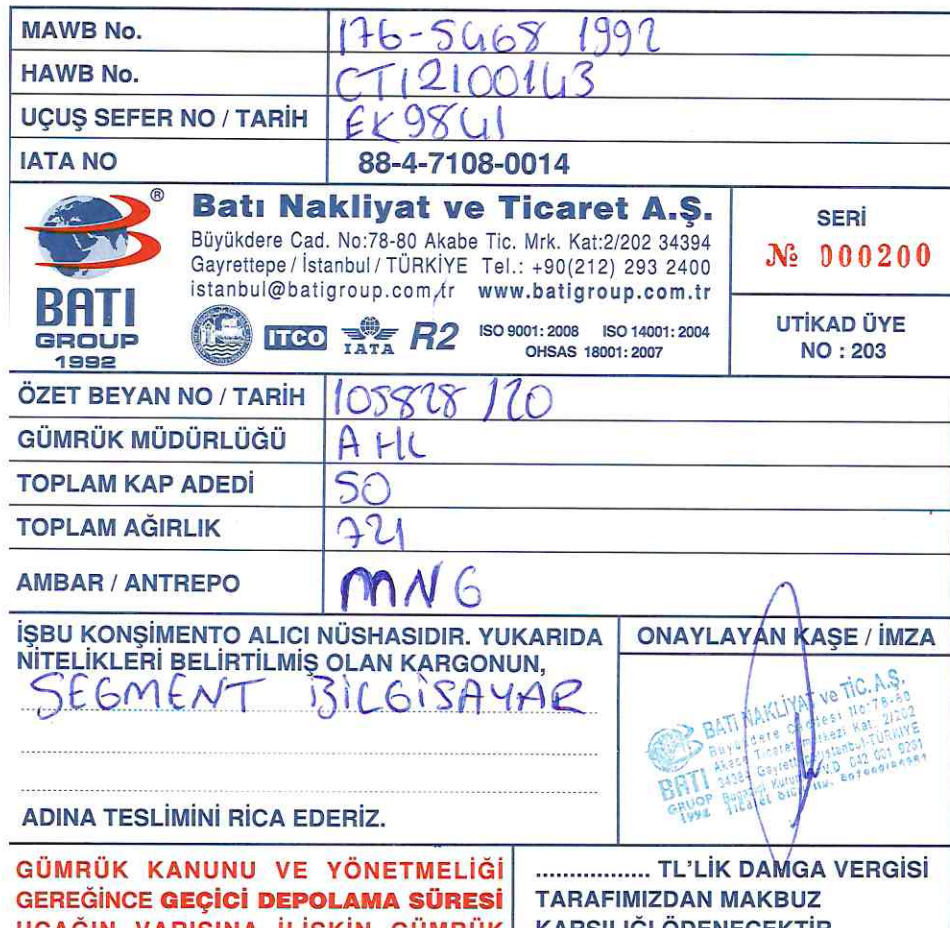 MAWB No. 176-5468 1992
HAWB No. CTI2100143
UÇUŞ SEFER NO / TARİH EK9841
IATA NO 88-4-7108-0014
®
Batı Nakliyat ve Ticaret A.Ş.
Büyükdere Cad. No:78-80 Akabe Tic. Mrk. Kat:2/202 34394
Gayrettepe / İstanbul / TÜRKİYE Tel.: +90(212) 293 2400
istanbul@batigroup.com.tr www.batigroup.com.tr
BATI
GROUP
1992
ITCO IATA R2 ISO 9001: 2008 ISO 14001: 2004
OHSAS 18001: 2007
SERİ
№ 000200
UTİKAD ÜYE
NO : 203
ÖZET BEYAN NO / TARİH 105828 / 20
GÜMRÜK MÜDÜRLÜĞÜ AHL
TOPLAM KAP ADEDİ 50
TOPLAM AĞIRLIK 721
AMBAR / ANTREPO MNG
İŞBU KONŞİMENTO ALICI NÜSHASIDIR. YUKARIDA
NİTELİKLERİ BELİRTİLMİŞ OLAN KARGONUN,
SEGMENT BİLGİSAYAR
ADINA TESLİMİNİ RİCA EDERİZ.
ONAYLAYAN KAŞE / İMZA
BATI NAKLİYAT ve TİC. A.Ş.
BATI
GRUOP
1992
GÜMRÜK KANUNU VE YÖNETMELİĞİ
GEREĞİNCE GEÇİCİ DEPOLAMA SÜRESİ
UÇAĞIN VARIŞINA İLİŞKİN GÜMRÜK
.................. TL'LİK DAMGA VERGİSİ
TARAFIMIZDAN MAKBUZ
KARŞILIĞI ÖDENECEKTİR